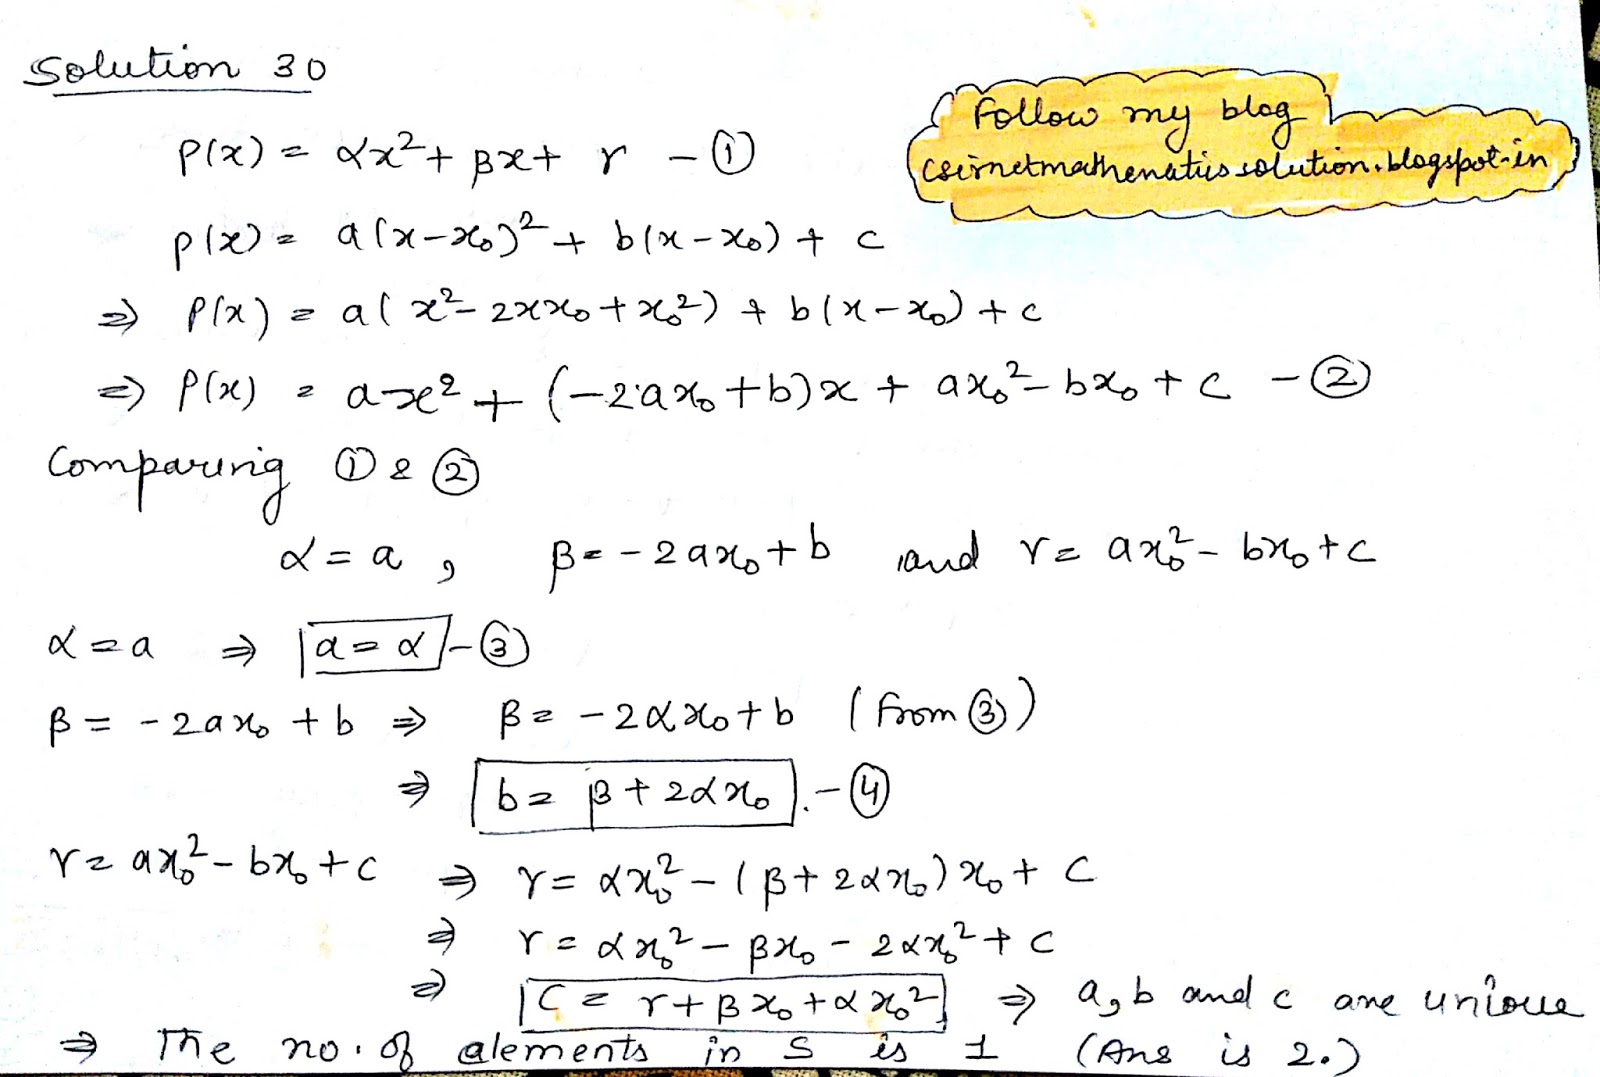 Solution 30
Follow my blog
csirnetmathematicssolution.blogspot.in
p(x) = αx² + βx + r - ①
p(x) = a(x-x₀)² + b(x-x₀) + c
⇒ P(x) = a(x² - 2xx₀ + x₀²) + b(x-x₀) + c
⇒ P(x) = ax² + (-2ax₀+b)x + ax₀² - bx₀ + c - ②
Comparing ① & ②
α = a , β = -2ax₀ + b and r = ax₀² - bx₀ + c
α = a ⇒ a = α - ③
β = -2ax₀ + b ⇒ β = -2αx₀ + b (from ③)
⇒ b = β + 2αx₀ . - ④
r = ax₀² - bx₀ + c ⇒ r = αx₀² - (β + 2αx₀)x₀ + c
⇒ r = αx₀² - βx₀ - 2αx₀² + c
⇒ C = r + βx₀ + αx₀² ⇒ a, b and c are unique
⇒ The no. of elements in S is 1 (Ans is 2.)